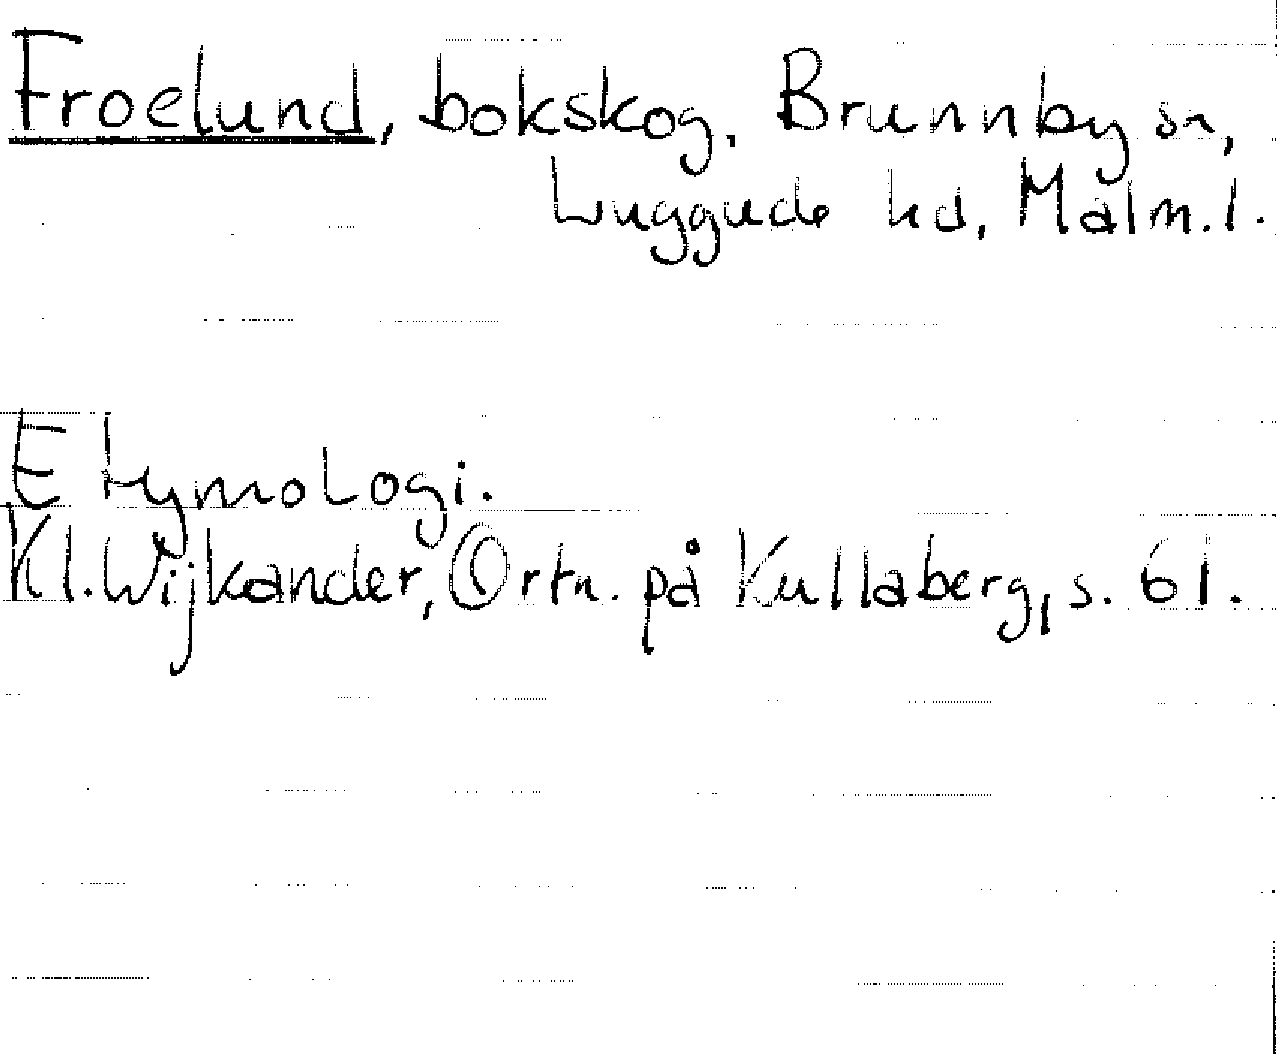 Froelund, bokskog. Brunnby sn,
Luggude hd, Malm.l.
Etymologi.
Kl. Wijkander, Ortn. på Kullaberg, s. 61.